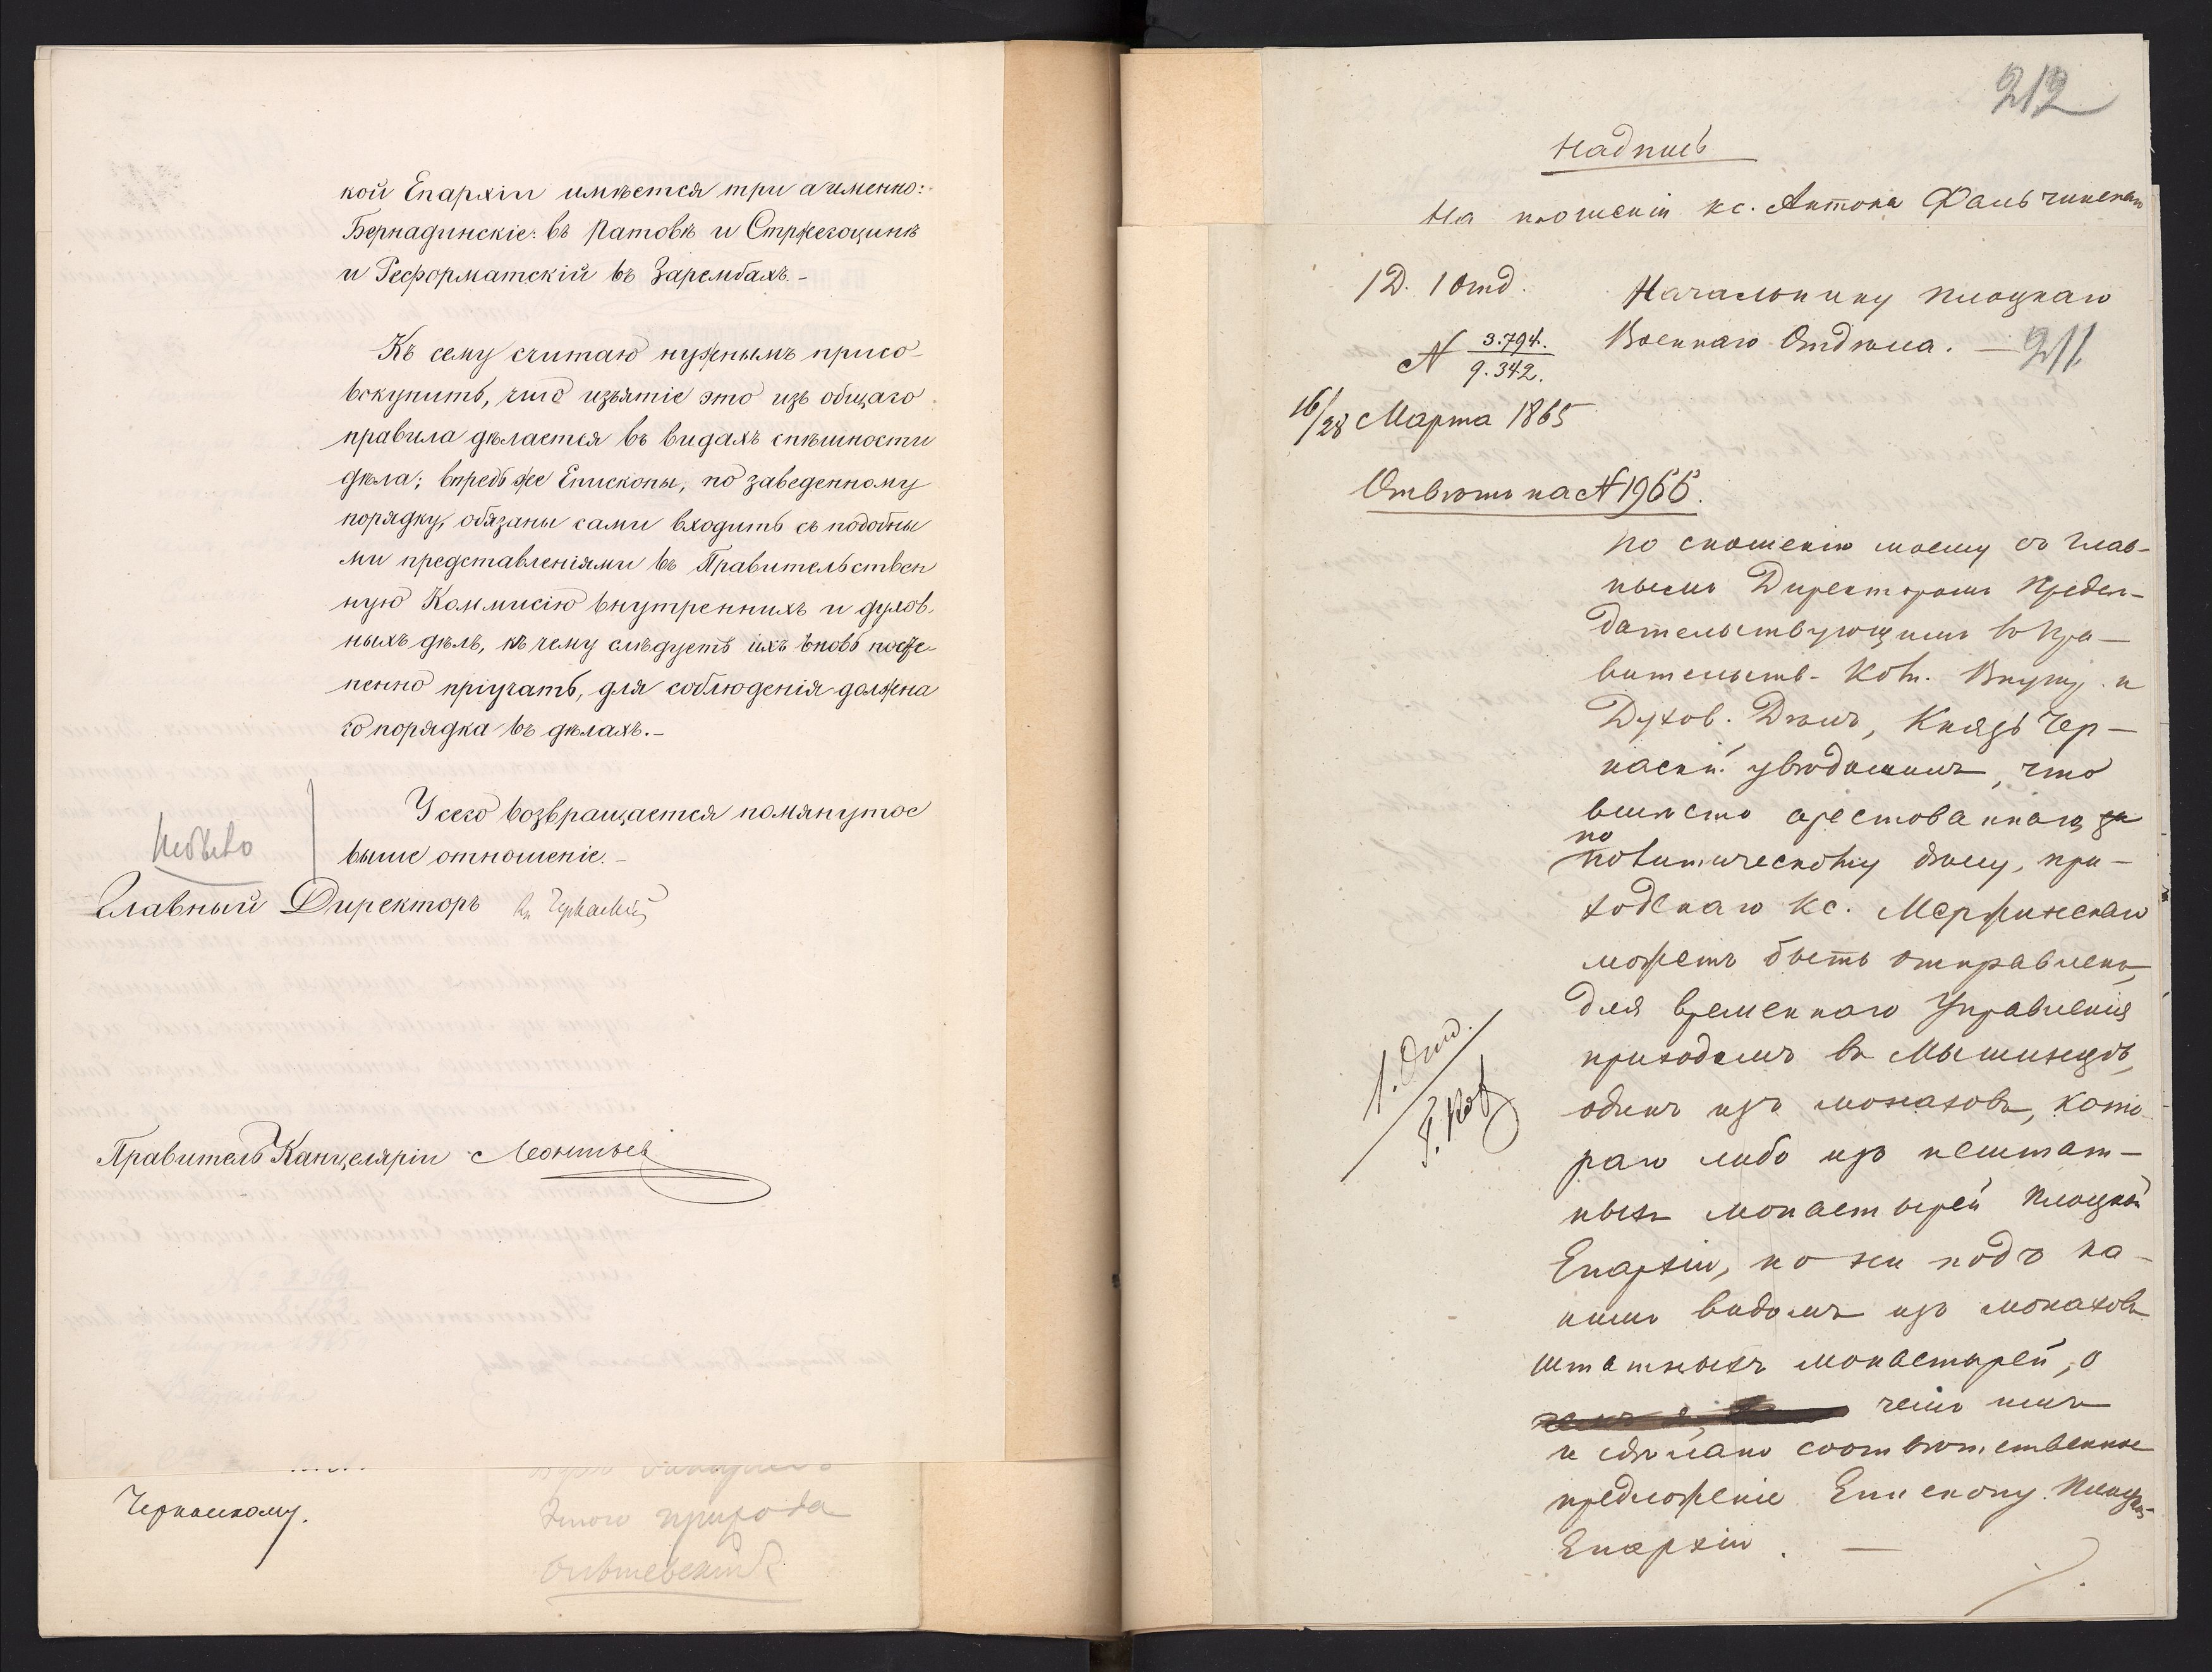 кой Епархіи имѣется три а именно:
Бернадинскіе: въ Ратовѣ и Стржегоцинѣ
и Реформатскій въ Зарембахъ.-
Къ сему считаю нужнымъ присо-
вокупить, что изъятіе это изъ общаго
правила дѣлается въ видахъ спѣшности
дѣла; впредь же Епископы, по заведенному
порядку, обязаны сами входить съ подобны
ми представленіями въ Правительствен
ную Коммисію внутреннихъ и духов-
ныхъ дѣлъ, къ чему слѣдуетъ ихъ вновь посте-
пенно пріучать, для соблюденія должна
го порядка въ дѣлахъ.-
У сего возвращается помянутое
выше отношеніе.-
Главный Директоръ Кн Черкаскій
Правитель Канцеляріи Леонтьев
Черкаскому.
этого прихода
212
Надпись
На прошеніи кс. Антона Фальчинскаго
1 Д. 1 Отд.
Начальнику Плоцкаго
N 3.794. / 9.342.
Военнаго Отдѣла. — 211
16/28 Марта 1865
Отвѣтъ на N 1966.
По сношенію моему съ Глав-
нымъ Директоромъ Предсѣ-
дательствующимъ въ Пра-
вительств. Ком. Внутр. и
Духов. Дѣлъ, Князь Чер-
каскій увѣдомилъ, что
вмѣсто арестованнаго
по
политическому дѣлу, при-
ходскаго кс. Мержинскаго
можетъ быть отправленъ,
для временнаго Управленія
приходомъ въ Мышинцѣ,
одинъ изъ монаховъ, кото
раго либо изъ нештат-
ныхъ монастырей Плоцкой
Епархіи, но ни подъ ка-
кимъ видомъ изъ монаховъ
штатныхъ монастырей, о
чемъ имъ
и сдѣлано соотвѣтственное
предложеніе Епископу Плоцкой
Епархіи. —
1. Отд.